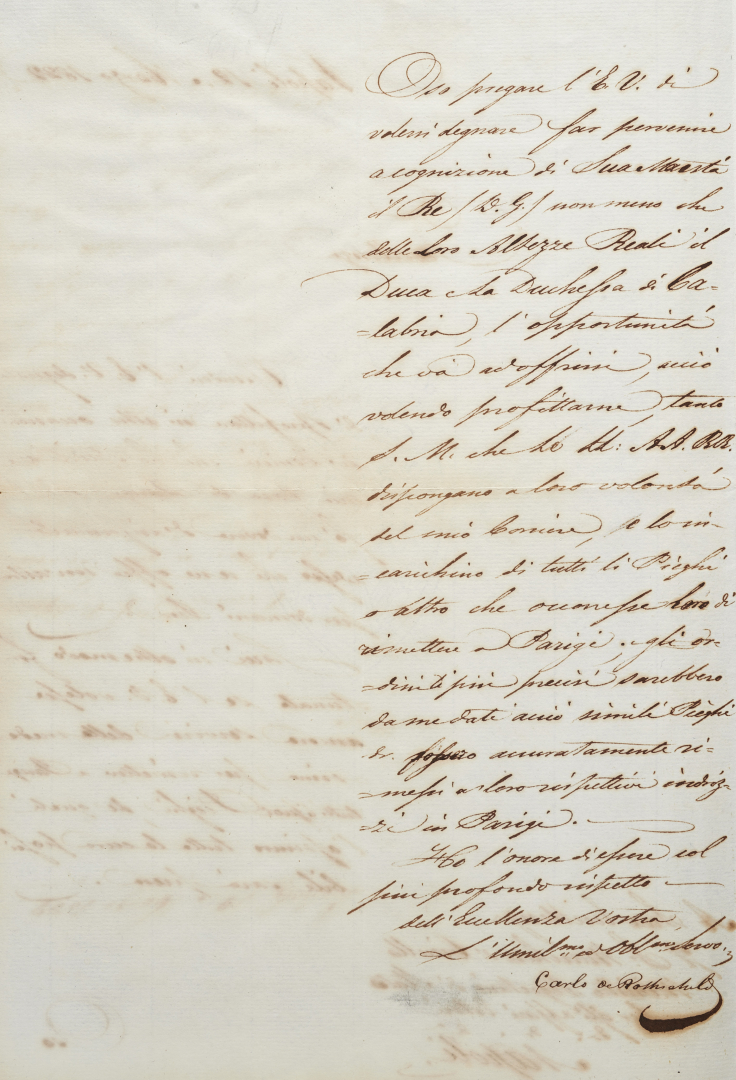 Oso pregare l'E. V. di
volersi degnare far pervenire
a cognizione di Sua Maestà
il Re /D. G./ non meno che
delle Loro Altezze Reali il
Duca e la Duchessa di Ca=
=labria, l'opportunità
che và ad offrirsi, acciò
volendo profittarne, tanto
S. M. che le LL: AA. RR.
dispongano a loro volontà
del mio Corriere, e lo in=
=carichino di tutti li Pieghi
o altro che occorresse loro di
rimettere a Parigi, e gli or=
=dini li più precisi sarebbero
da me dati acciò simili Pieghi
fossero accuratamente ri=
=messi a' loro rispettivi indriz=
=zi in Parigi.
Ho l'onore di essere col
più profondo rispetto
dell'Eccellenza Vostra
L'Umil.mo ed Obb.mo Servo
Carlo de Rothschild